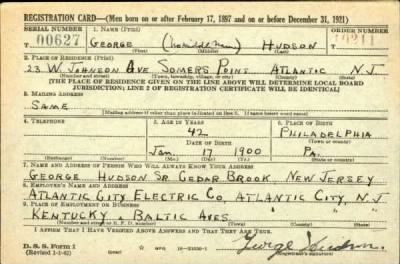 REGISTRATION CARD—(Men born on or after February 17, 1897 and on or before December 31, 1921)
SERIAL NUMBER 1. NAME (Print) ORDER NUMBER
00627 GEORGE (no middle name) HUDSON 10211
(First) (Middle) (Last)
2. PLACE OF RESIDENCE (Print)
23 W. JOHNSON AVE SOMERS POINT ATLANTIC N.J
(Number and street) (Town, township, village, or city) (County) (State)
[THE PLACE OF RESIDENCE GIVEN ON THE LINE ABOVE WILL DETERMINE LOCAL BOARD
JURISDICTION; LINE 2 OF REGISTRATION CERTIFICATE WILL BE IDENTICAL]
3. MAILING ADDRESS
SAME
[Mailing address if other than place indicated on line 2. If same insert word same]
4. TELEPHONE 5. AGE IN YEARS 6. PLACE OF BIRTH
42 PHILADELPHIA
DATE OF BIRTH (Town or county)
JAN. 17 1900 PA.
(Exchange) (Number) (Mo.) (Day) (Yr.) (State or country)
7. NAME AND ADDRESS OF PERSON WHO WILL ALWAYS KNOW YOUR ADDRESS
GEORGE HUDSON SR. CEDAR BROOK NEW JERSEY
8. EMPLOYER'S NAME AND ADDRESS
ATLANTIC CITY ELECTRIC CO, ATLANTIC CITY, N.J
9. PLACE OF EMPLOYMENT OR BUSINESS
KENTUCKY & BALTIC AVES.
(Number and street or R. F. D. number) (Town) (County) (State)
I AFFIRM THAT I HAVE VERIFIED ABOVE ANSWERS AND THAT THEY ARE TRUE.
D. S. S. Form 1
(Revised 1-1-42) George Hudson
(Registrant's signature)